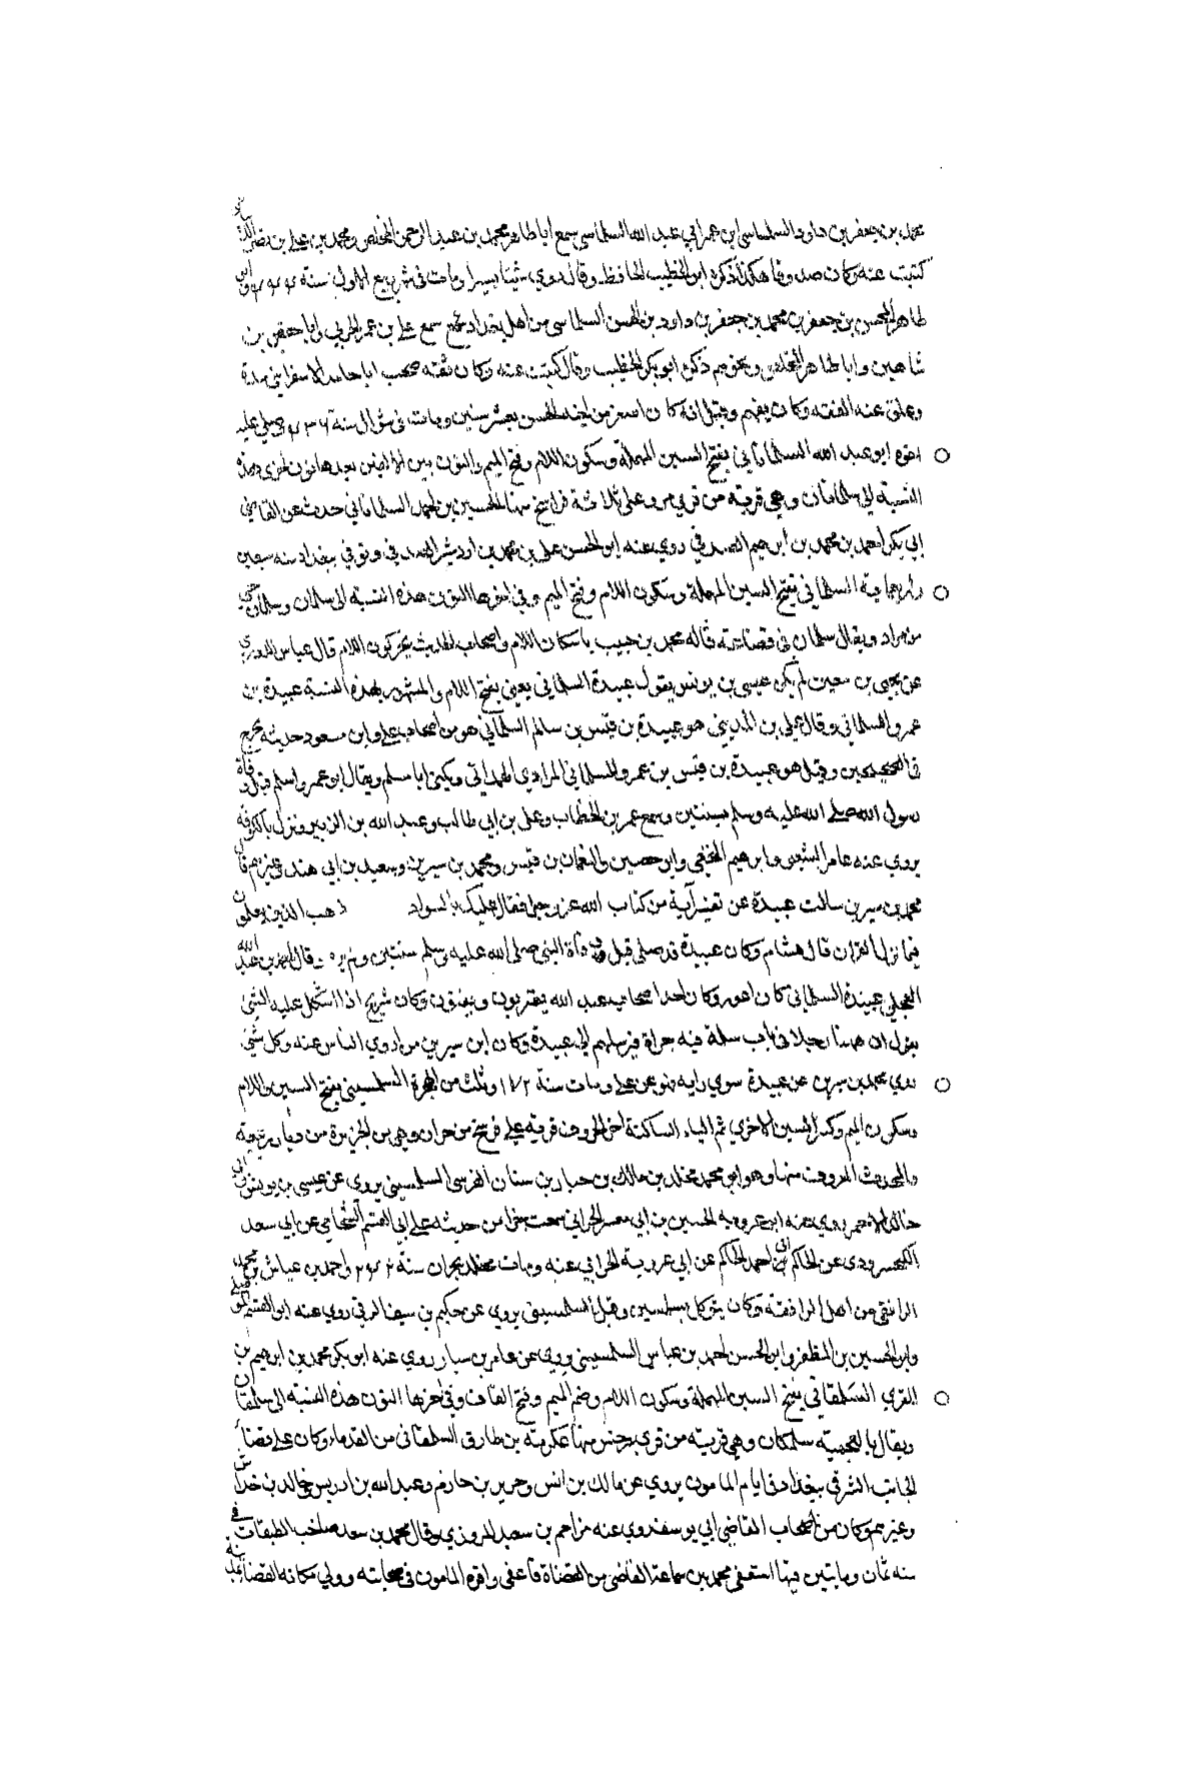 محمد بن جعفر بن داود السلماسي ابن عم ابي عبد الله السلماسي سمع ابا طاهر محمد بن عبد الرحمن المخلص ومحمد بن علي بن نصر
كتبت عنه وكان صدوقا هكذا ذكره ابن الخطيب الحافظ وقال روي شيئا يسيرا ومات في شهر ربيع الاول سنة
طاهر المحسن بن جعفر بن محمد بن جعفر بن داود بن الحسن السلماسي من اهل بغداد سمع علي بن عمر الحربي وابا حفص بن
شاهين وابا طاهر المخلص ونحوهم ذكره ابو بكر الخطيب وقال كتبت عنه وكان ثقة صحب ابا حامد الاسفرايني مدة
وعلق عنه الفقه وكان يفهم وقيل انه كان اصغر من اخيه الحسن بعشر سنين ومات في شوال سنة ٤٣٦ وصلي عليه
اخوه ابو عبد الله السلماناني بفتح السين المهملة وسكون اللام وفتح الميم والنون بين الالفين بعدها نون اخرى هذه
النسبة الي سلمانان وهي قرية من قري مرو على ثلاثة فراسخ منها الحسين بن احمد السلماناني حدث عن القاضي
ابي بكر احمد بن محمد بن ابرهيم الصدفي روي عنه ابو الحسن علي بن محمد بن اردشير الصدفي وتوفي ببغداد سنه سبعين
واربعماية السلماني بفتح السين المهملة وسكون اللام وفتح الميم وفي اخرها النون هذه النسبة الى سلمان وسلمان حي
من مراد ويقال سلمان في قضاعة قاله محمد بن حبيب باسكان اللام واصحاب الحديث يحركون اللام قال عباس الدوري
عن يحيى بن معين لم يكن عيسى بن يونس يقول عبيدة السلماني يعني بفتح اللام والمشهور بهذه النسبة عبيدة بن
عمرو السلماني وقال علي بن المديني هو عبيدة بن قيس بن سالم السلماني هو من اصحاب علي وابن مسعود حديثه مخرج
في الصحيحين وقيل هو عبيدة بن قيس بن عمرو السلماني المرادي الهمداني ويكنى ابا مسلم ويقال ابو عمرو اسلم قبل وفاة
رسول الله صلى الله عليه وسلم بسنتين وسمع عمر بن الخطاب وعلي بن ابي طالب وعبد الله بن الزبير ونزل بالكوفة
يروي عنه عامر الشعبي وابرهيم النخعي وابو حصين والنعمان بن قيس ومحمد بن سيرين وسعيد بن ابي هند وغيرهم قال
محمد بن سيرين سالت عبيدة عن تفسير آية من كتاب الله عز وجل فقال عليك بالسداد ذهب الذين يعلمون
فيما نزل القران قال هشام وكان عبيدة قد صلى قبل وفاة النبي صلى الله عليه وسلم سنتين ولم يره قال احمد بن عبد الله
العجلي عبيدة السلماني كان اعور وكان احد اصحاب عبد الله يقريون ويفتون وكان شريح اذا اشكل عليه الشيئ
يقول ان ههنا رجلا في باب سلمة فيه جراة فيرسلهم الي عبيدة وكان ابن سيرين من اروي الناس عنه وكل شيئ
روي محمد بن سيرين عن عبيدة سوي رايه فهو عن علي ومات سنة ١٧٢ وثلث من الهجرة السلمسيني بفتح السين واللام
وسكون الميم وكسر السين الاخري ثم الياء الساكنة اخر الحروف قرية على فرسخ من حران وهي من الجزيرة من ديار ربيعة
والمحدث المعروف منها وهو ابو محمد مخلد بن مالك بن جبار بن سنان القرشي السلمسيني يروي عن عيسى بن يونس وابي
خالد الاحمر روي عنه ابو عروبة الحسين بن ابي معشر الحراني سمعت جزءا من حديثه على ابي القاسم الشحامي عن ابي سعد
الكنجرودي عن الحاكم ابي احمد الحاكم عن ابي عروبة الحراني عنه ومات مخلد بحران سنة ٢٤٢ واحمد بن عياش بن محمد
الرافقي من اهل الرافقة وكان يتوكل بسلمسين وقيل السلمسيني يروي عن حكيم بن سيف الرقي روي عنه ابو القاسم
وابو الحسين بن المظفر وابو الحسن احمد بن عباس السلمسيني يروي عن عامر بن سيار روي عنه ابو بكر محمد بن ابرهيم بن
المقري السلمقاني بفتح السين المهملة وسكون اللام وضم الميم وفتح القاف وفي اخرها النون هذه النسبة الى سلمقان
ويقال بالعجمية سلمكان وهي قرية من قري سرخس منها عكرمة بن طارق السلمقاني من القدماء وكان على قضاء
الجانب الشرقي ببغداد في ايام المامون يروي عن مالك بن انس وجرير بن حازم وعبد الله بن ادريس وخالد بن خداش
وغيرهم وكان من اصحاب القاضي ابي يوسف روي عنه مزاحم بن سعيد المروزي وقال محمد بن سعد صاحب الطبقات في
سنه ثمان ومايتين فيها استعفى محمد بن سماعة القاضي من القضاة فاعفي واقره المامون في صحابته وولي مكانه القضاء